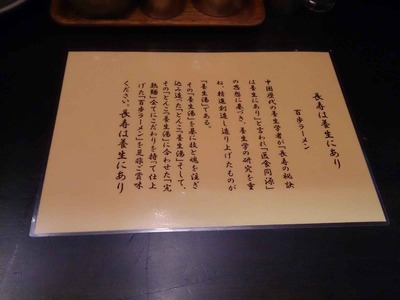 長寿は養生にあり
百歩ラーメン
中国歴代の養生学者が「長寿の秘訣
は養生にあり」と言われ「医食同源」
の思想に基づき、養生学の研究を重
ね、精進創造し造り上げたものが
「養生湯」である。
その「養生湯」を基に技と魂を注ぎ
込み造った「とんこつ養生湯」そして、
その「とんこつ養生湯」に合わせた「完
熟麺」全てにこだわりを持って仕上
げた「百歩ラーメン」を是非ご賞味
ください。長寿は養生にあり